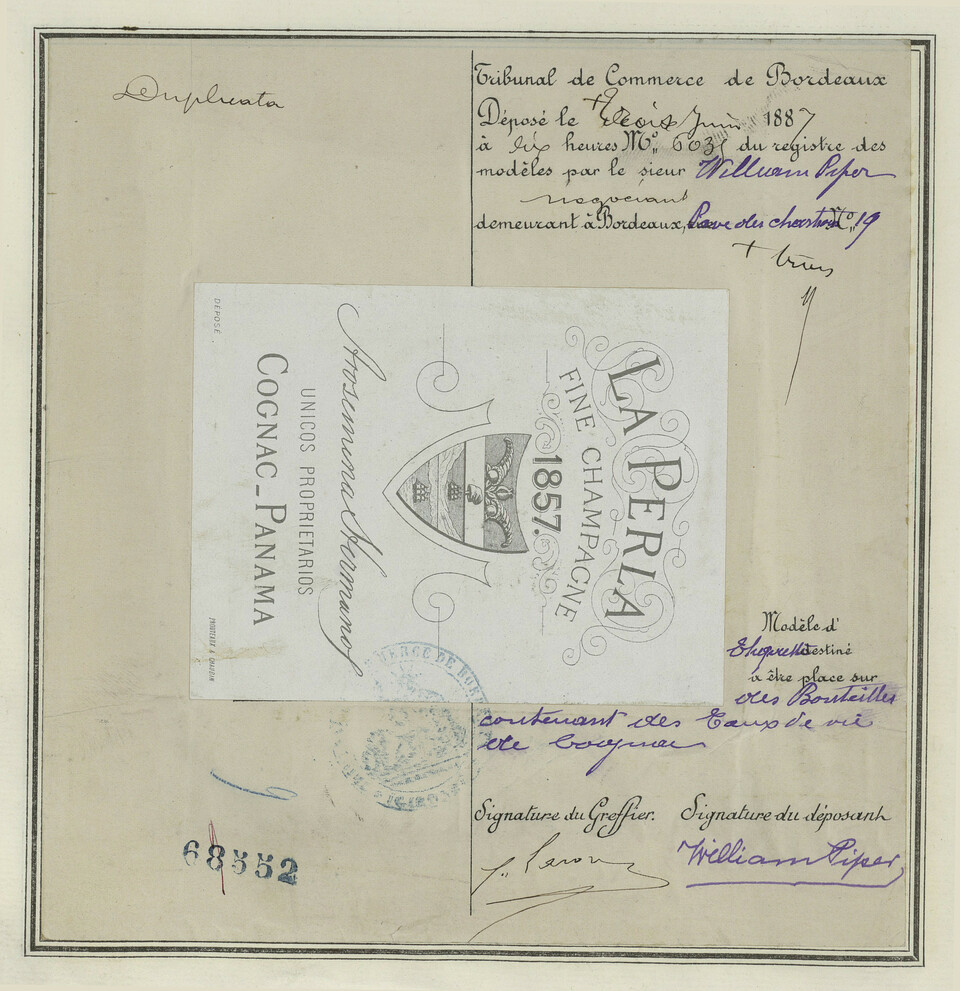 Duplicata
Tribunal de Commerce de Bordeaux
Déposé le + Trois Juin 1887
à dix heures Nº 6035 du registre des
modèles par le sieur William Piper
négociant
demeurant à Bordeaux, Pavé des chartrons Nº 19
+ trois
DÉPOSÉ.
LA PERLA
FINE CHAMPAGNE
1857.
Arosemena Hermanos
UNICOS PROPRIETARIOS
COGNAC_PANAMA
Modèle d'
Etiquette destiné
à être place sur
des Bouteilles
contenant des Eaux de vie
de Cognac
Signature du Greffier.
Signature du déposant
William Piper
68552